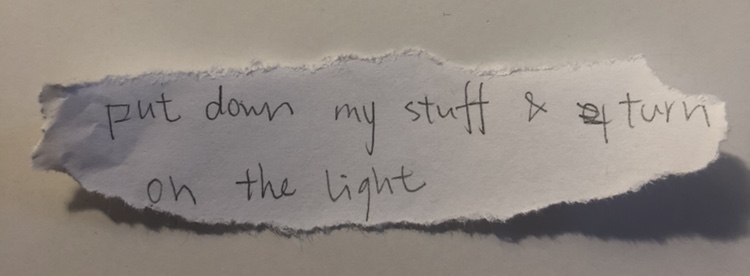 put down my stuff & turn
on the light